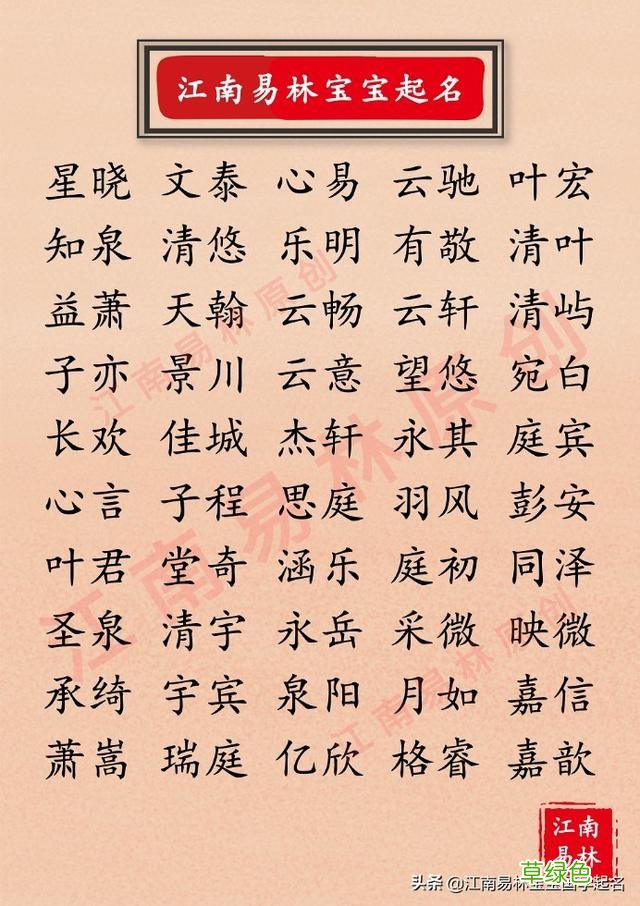 江南易林宝宝起名
星晓 文泰 心易 云驰 叶宏
知泉 清悠 乐明 有敬 清叶
益萧 天翰 云畅 云轩 清屿
子亦 景川 云意 望悠 宛白
长欢 佳城 杰轩 永其 庭宾
心言 子程 思庭 羽风 彭安
叶君 堂奇 涵乐 庭初 同泽
圣泉 清宇 永岳 采微 映微
承绮 宇宾 泉阳 月如 嘉信
萧嵩 瑞庭 亿欣 格睿 嘉歆
江南易林原创
江南易林原创
江南易林原创
江南
易林
草绿色
头条 @江南易林宝宝国学起名